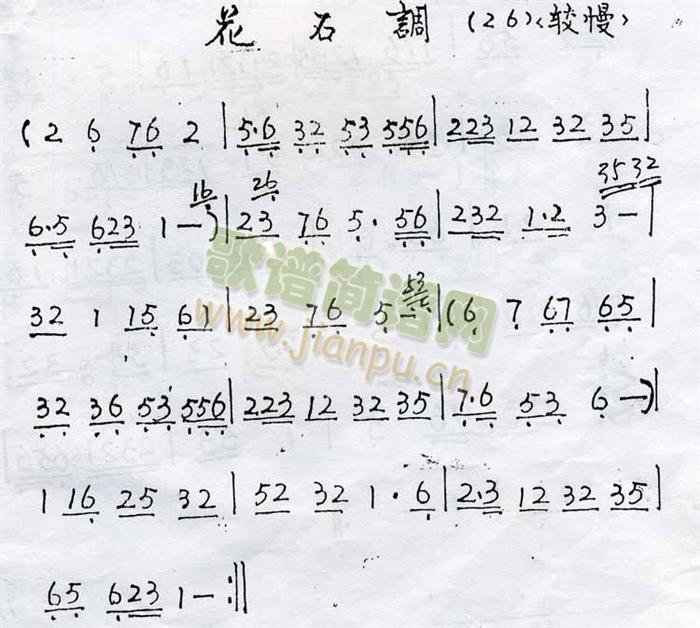 花石調 (26)<较慢>
(2 6 76 2 | 5·6 32 53 556 | 223 12 32 35 |
16 26 3532
6·5 623 1—) | 23 76 5· 56 | 232 1·2 3— |
32 1 15 61 | 23 76 5— | (6 7 67 65 |
歌谱简谱网
www.jianpu.cn
32 36 53 556 | 223 12 32 35 | 7·6 53 6—) ||
1 16 25 32 | 52 32 1· 6 | 2·3 12 32 35 |
65 623 1— :||